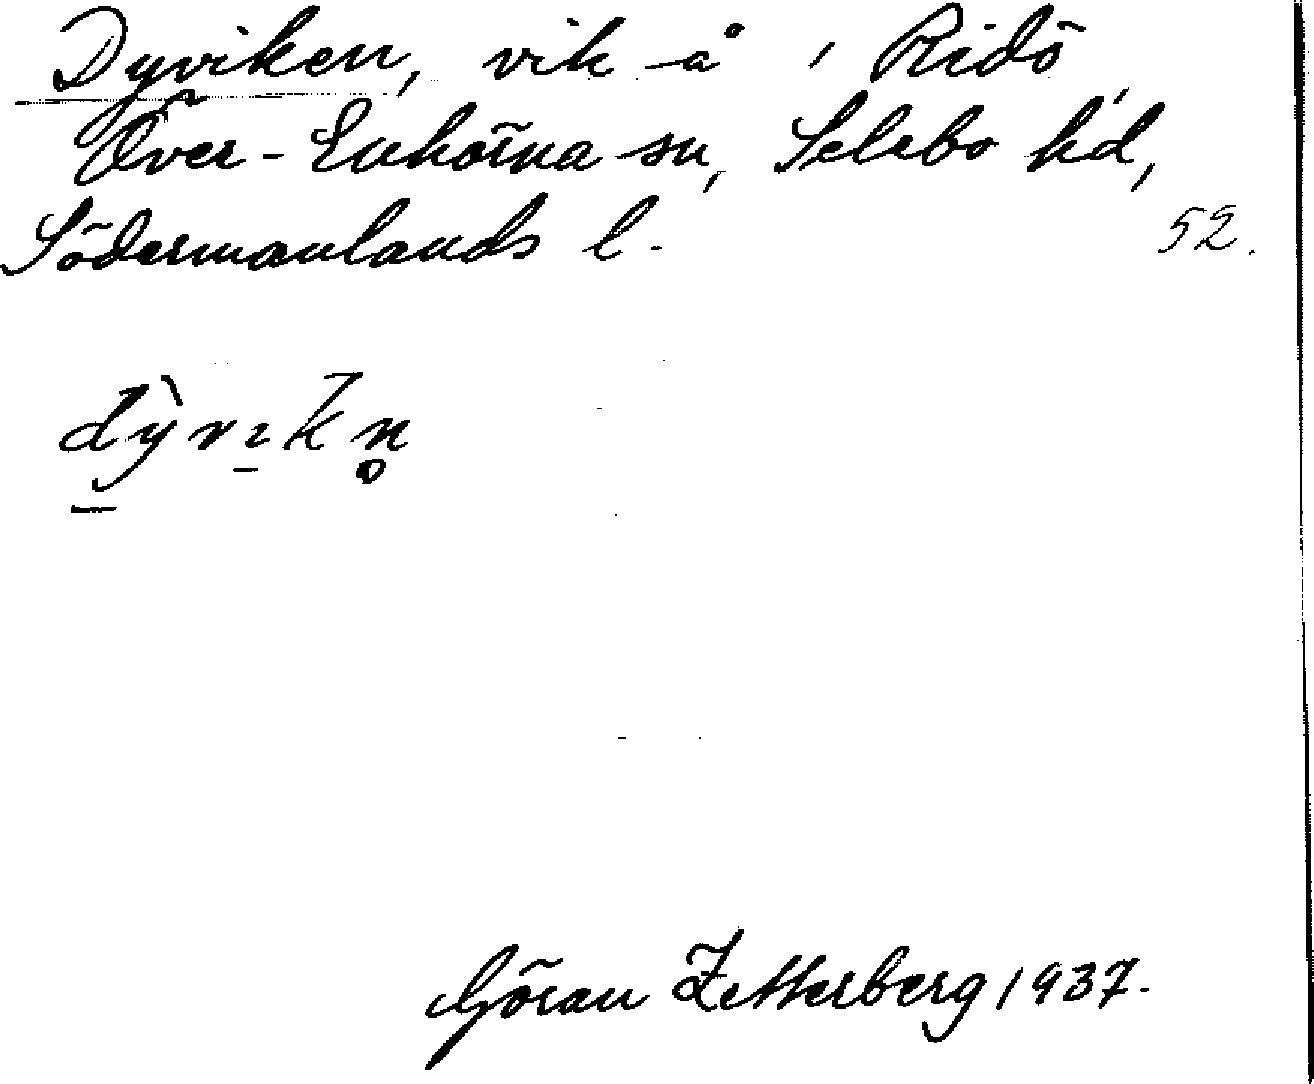 Dyviken, vik å Ridö,
Över-Enhörna sn, Selebo hd,
Södermanlands l.
52.
dỳvı̱kn̥
Göran Zetterberg 1937.